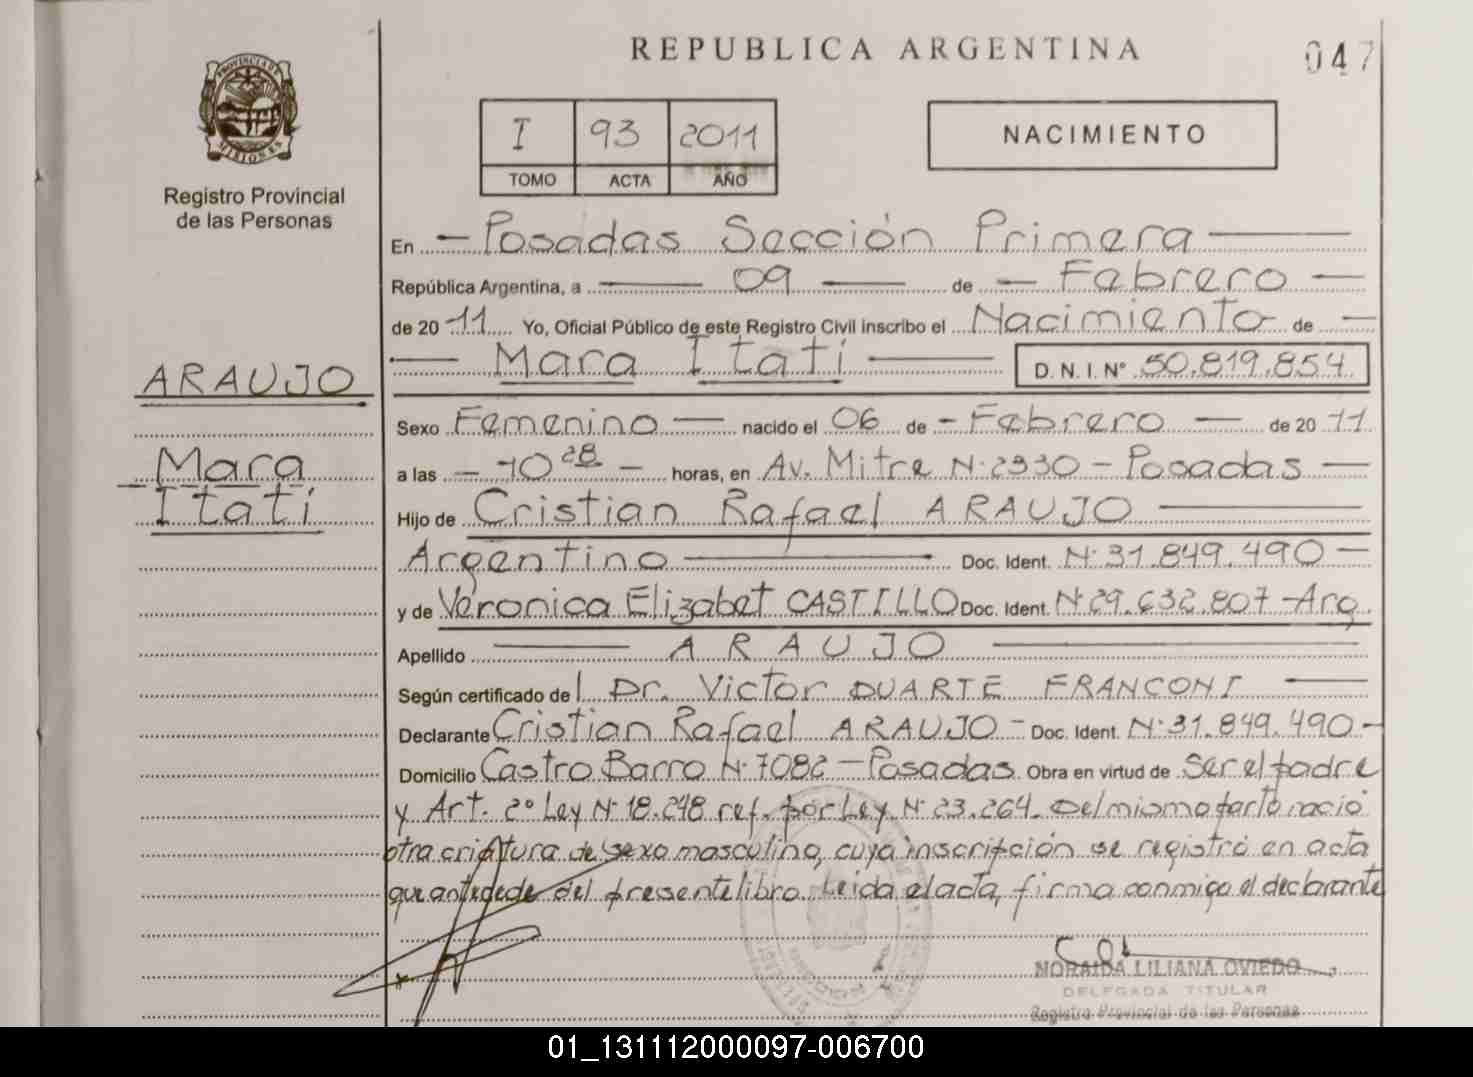 REPUBLICA ARGENTINA
047
PROVINCIA DE MISIONES
Registro Provincial
de las Personas
I 93 2011
TOMO ACTA AÑO
NACIMIENTO
En - Posadas Sección Primera
República Argentina, a 09 de - Febrero -
de 20 11 Yo, Oficial Público de este Registro Civil inscribo el Nacimiento de -
Mara Itatí D.N.I. N° 50.819.854
ARAUJO
Mara
Itatí
Sexo Femenino - nacido el 06 de - Febrero - de 20 11
a las - 10 28 - horas, en Av. Mitre N° 2330 - Posadas -
Hijo de Cristian Rafael ARAUJO
Argentino Doc. Ident. N° 31.849.490 -
y de Veronica Elizabet CASTILLO Doc. Ident. N° 29.632.807 - Arg.
Apellido ARAUJO
Según certificado del Dr. Victor DUARTE FRANCONI -
Declarante Cristian Rafael ARAUJO - Doc. Ident. N° 31.849.490 -
Domicilio Castro Barro N° 7082 - Posadas. Obra en virtud de Ser el padre
y Art. 2° Ley N° 18.248 ref. por Ley N° 23.264. Del mismo parto nació
otra criatura de sexo masculino, cuya inscripción se registró en acta
que antecede del presente libro. Leida el acta, firma conmigo el declarante
NORAIDA LILIANA OVIEDO
DELEGADA TITULAR
Registro Provincial de las Personas
01_131112000097-006700